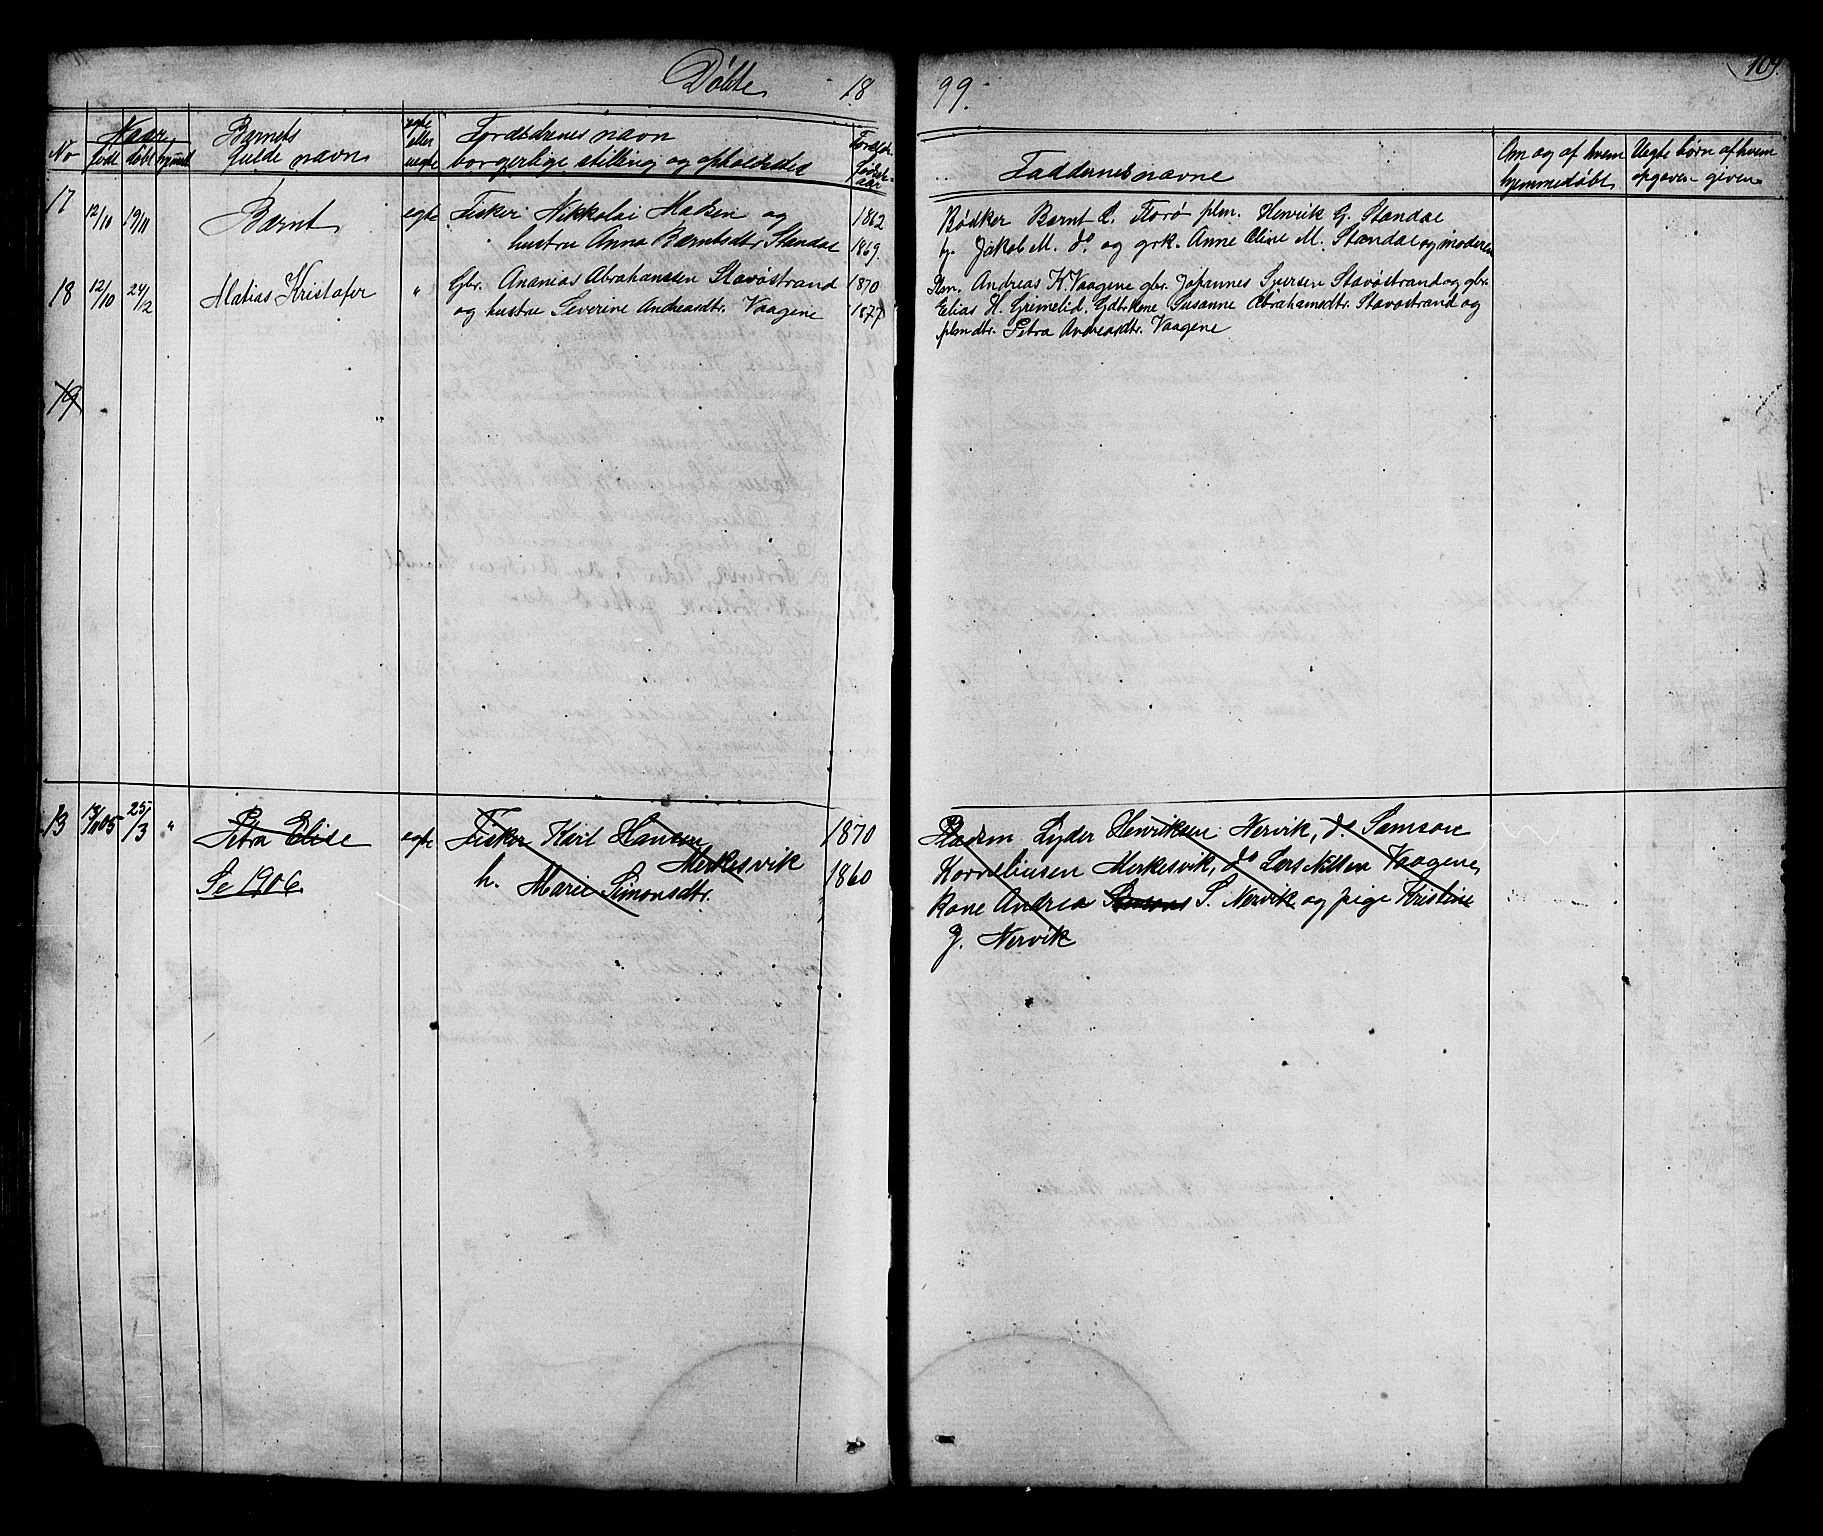 Døbte 18
99.
109.
No
Naar
født døbt hjemmed.
Barnets
fulde navn
egte
eller
uegte
Forældrenes navn
borgerlige stilling og opholdssted
Foræld.
fødsels-
aar
Faddernes navne
Om og af hvem
hjemmedøbt
Uegte børn af hvem
opgaven given
17 12/10 19/11 Bernt egte Fisker Nikkolai Madsen og 1862
hustru Anna Berntsdtr. Standal 1869.
Bødker Bernt A. Florø plm. Henrik G. Standal
Jakob M. do og grk. Anne Oline M. Standal og moderen
18 12/10 24/2 Matias Kristofer " Gbr. Ananias Abrahamsen Stavøstrand 1870
og hustru Severine Andreasdtr. Vaagene 1877
Plm. Andreas K. Vaagene gbr. Johannes Iversen Stavøstrand og gbr.
Elias H. Grimelid. Gdtrkene Susanne Abrahamsdtr. Stavøstrand og
plmdtr. Petra Andreasdtr. Vaagene
19
13 13/11 05 25/3 " Petra Elise egte Fisker Karl Hansen 1870
Merkesvik
Se 1906. h. Marie Simonsdtr. 1860
Pladsm Lyder Henriksen Nervik, do Samson
Korneliussen Merkesvik, do Lars Nilssen Vaagene,
Kone Andrea S. Nervik og pige Kristine
J. Nervik